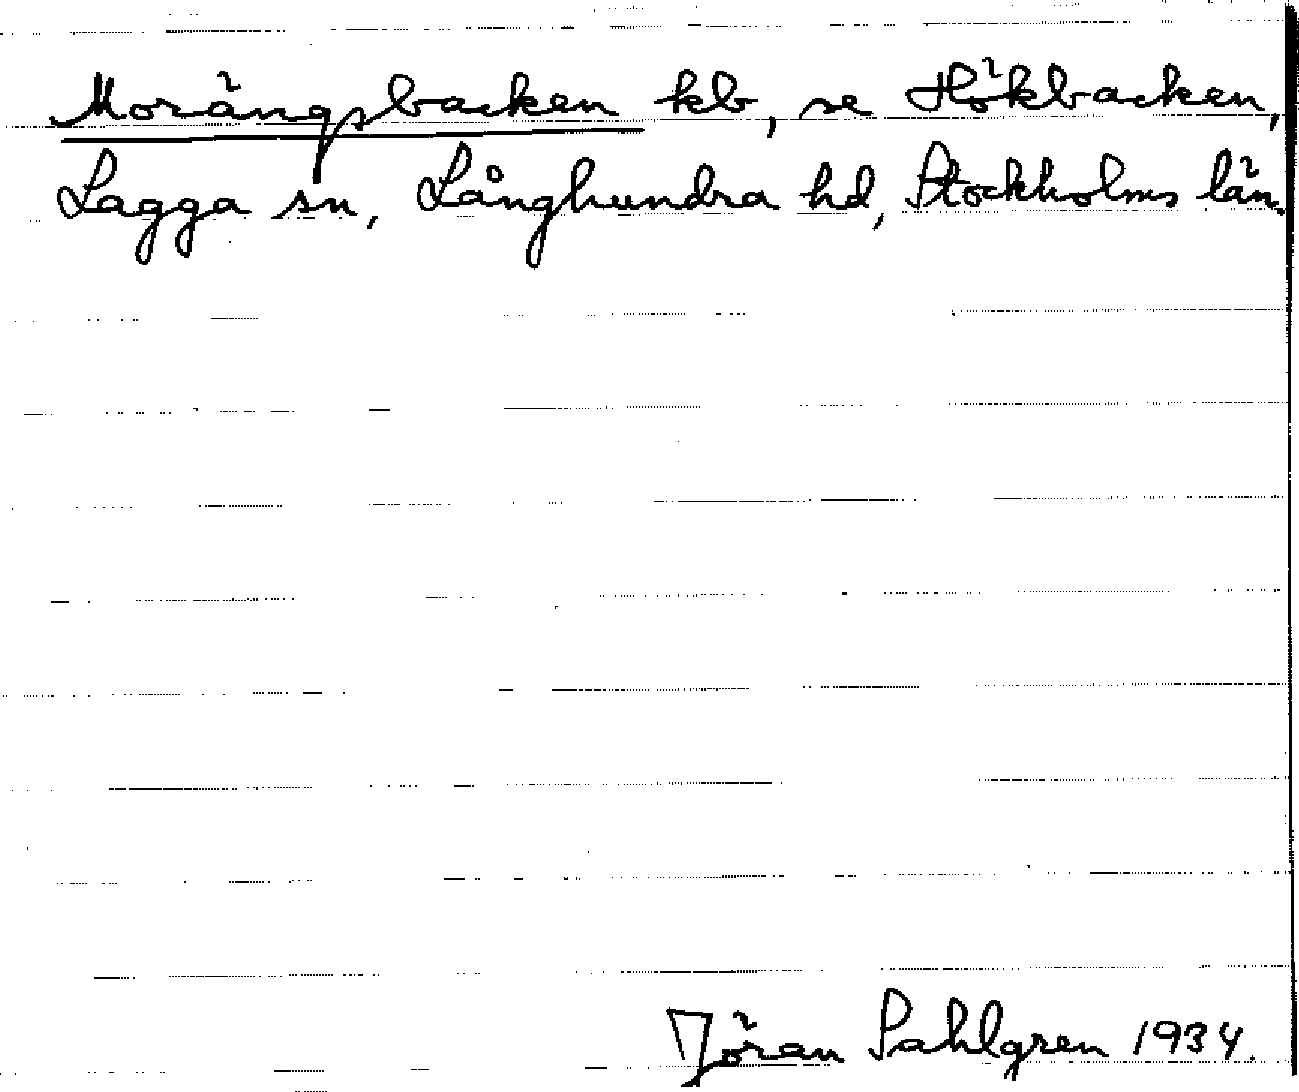 Morängsbacken kb, se Hökbacken,
Lagga sn, Långhundra hd, Stockholms län.
Jöran Sahlgren 1934.